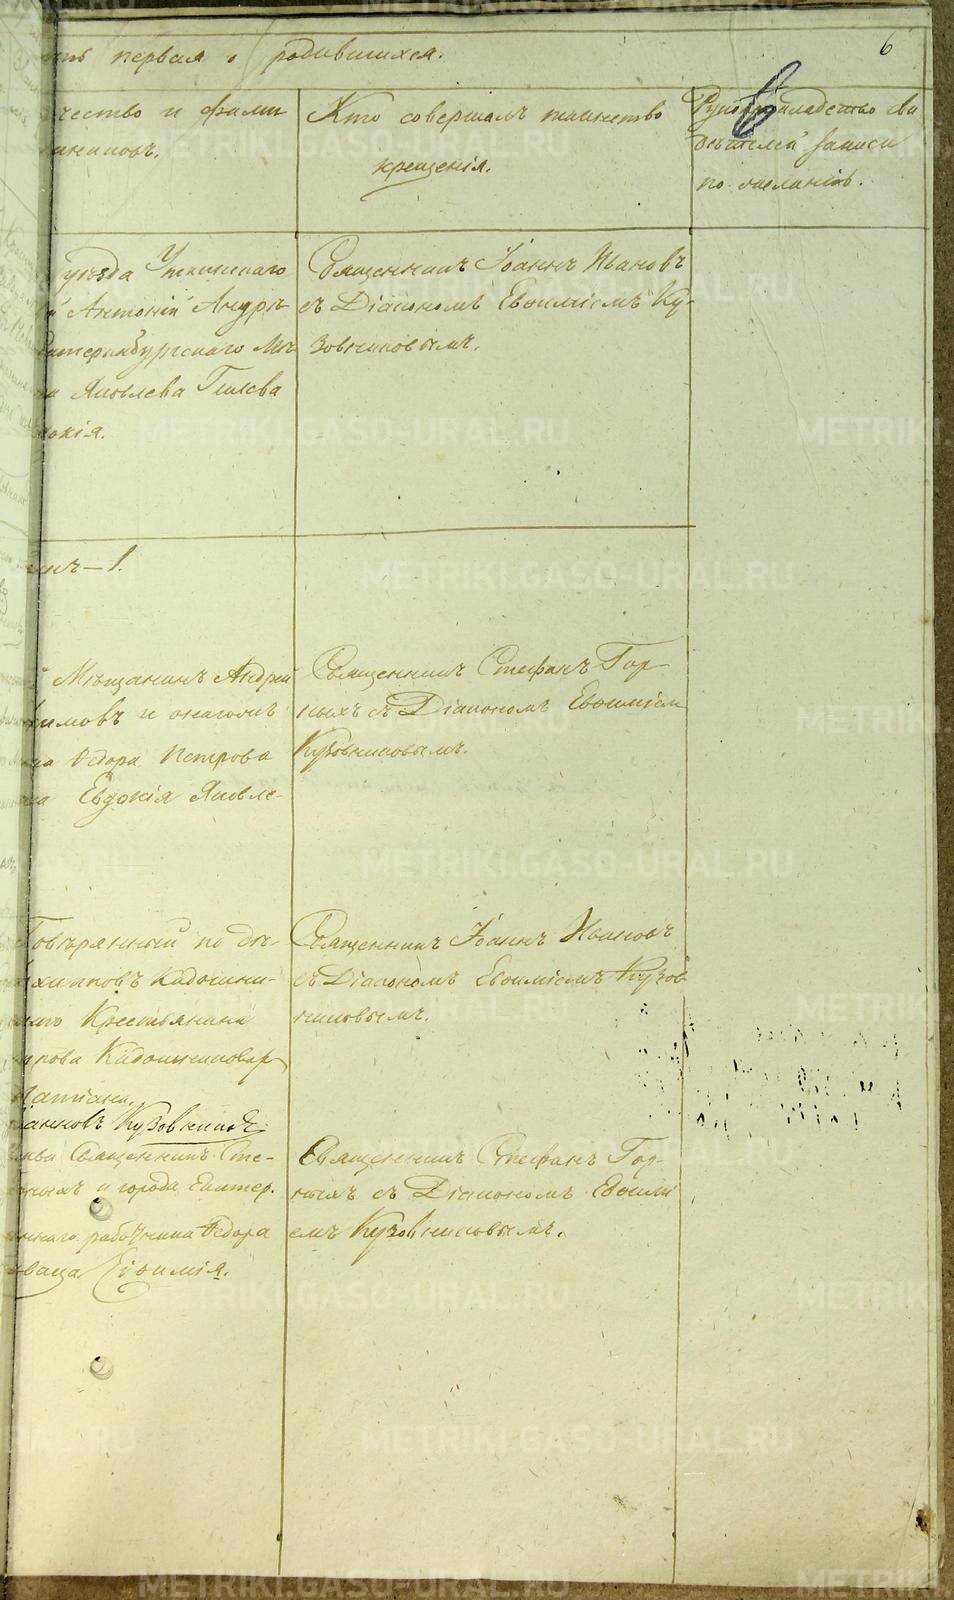 первая о родившихся.
6
чество и фами
Кто совершалъ таинство
крещенія.
Рукоприкладство сви
детелей записи
по желанію.
уѣзда Уткинскаго
Антоній Андрѣ
катеринбургскаго Мѣ
Яковлева Гилева
докія.
Священникъ Іоаннъ Ивановъ
съ Діакономъ Евѳиміемъ Ку-
зовниковымъ.
1.
Мѣщанинъ Андрей
имовъ и
Ѳедора Петрова
Евдокія Яковле-
Священникъ Стефанъ Гор-
ныхъ съ Діакономъ Евѳиміем
Кузовниковымъ.
Повѣрянный по дѣ-
Архиповъ Кадошни-
Крестьянина
ипова Кадошникова
Священникъ Іоаннъ Ивановъ
съ Діакономъ Евѳиміемъ Кузов
никовымъ.
анновъ Кузовников
Священникъ Сте-
ныхъ и города Екатер.
работника Ѳедора
Евѳимія.
Священникъ Стефанъ Гор-
ныхъ съ Діакономъ Евѳимі
емъ Кузовниковымъ.
METRIKI.GASO-URAL.RU